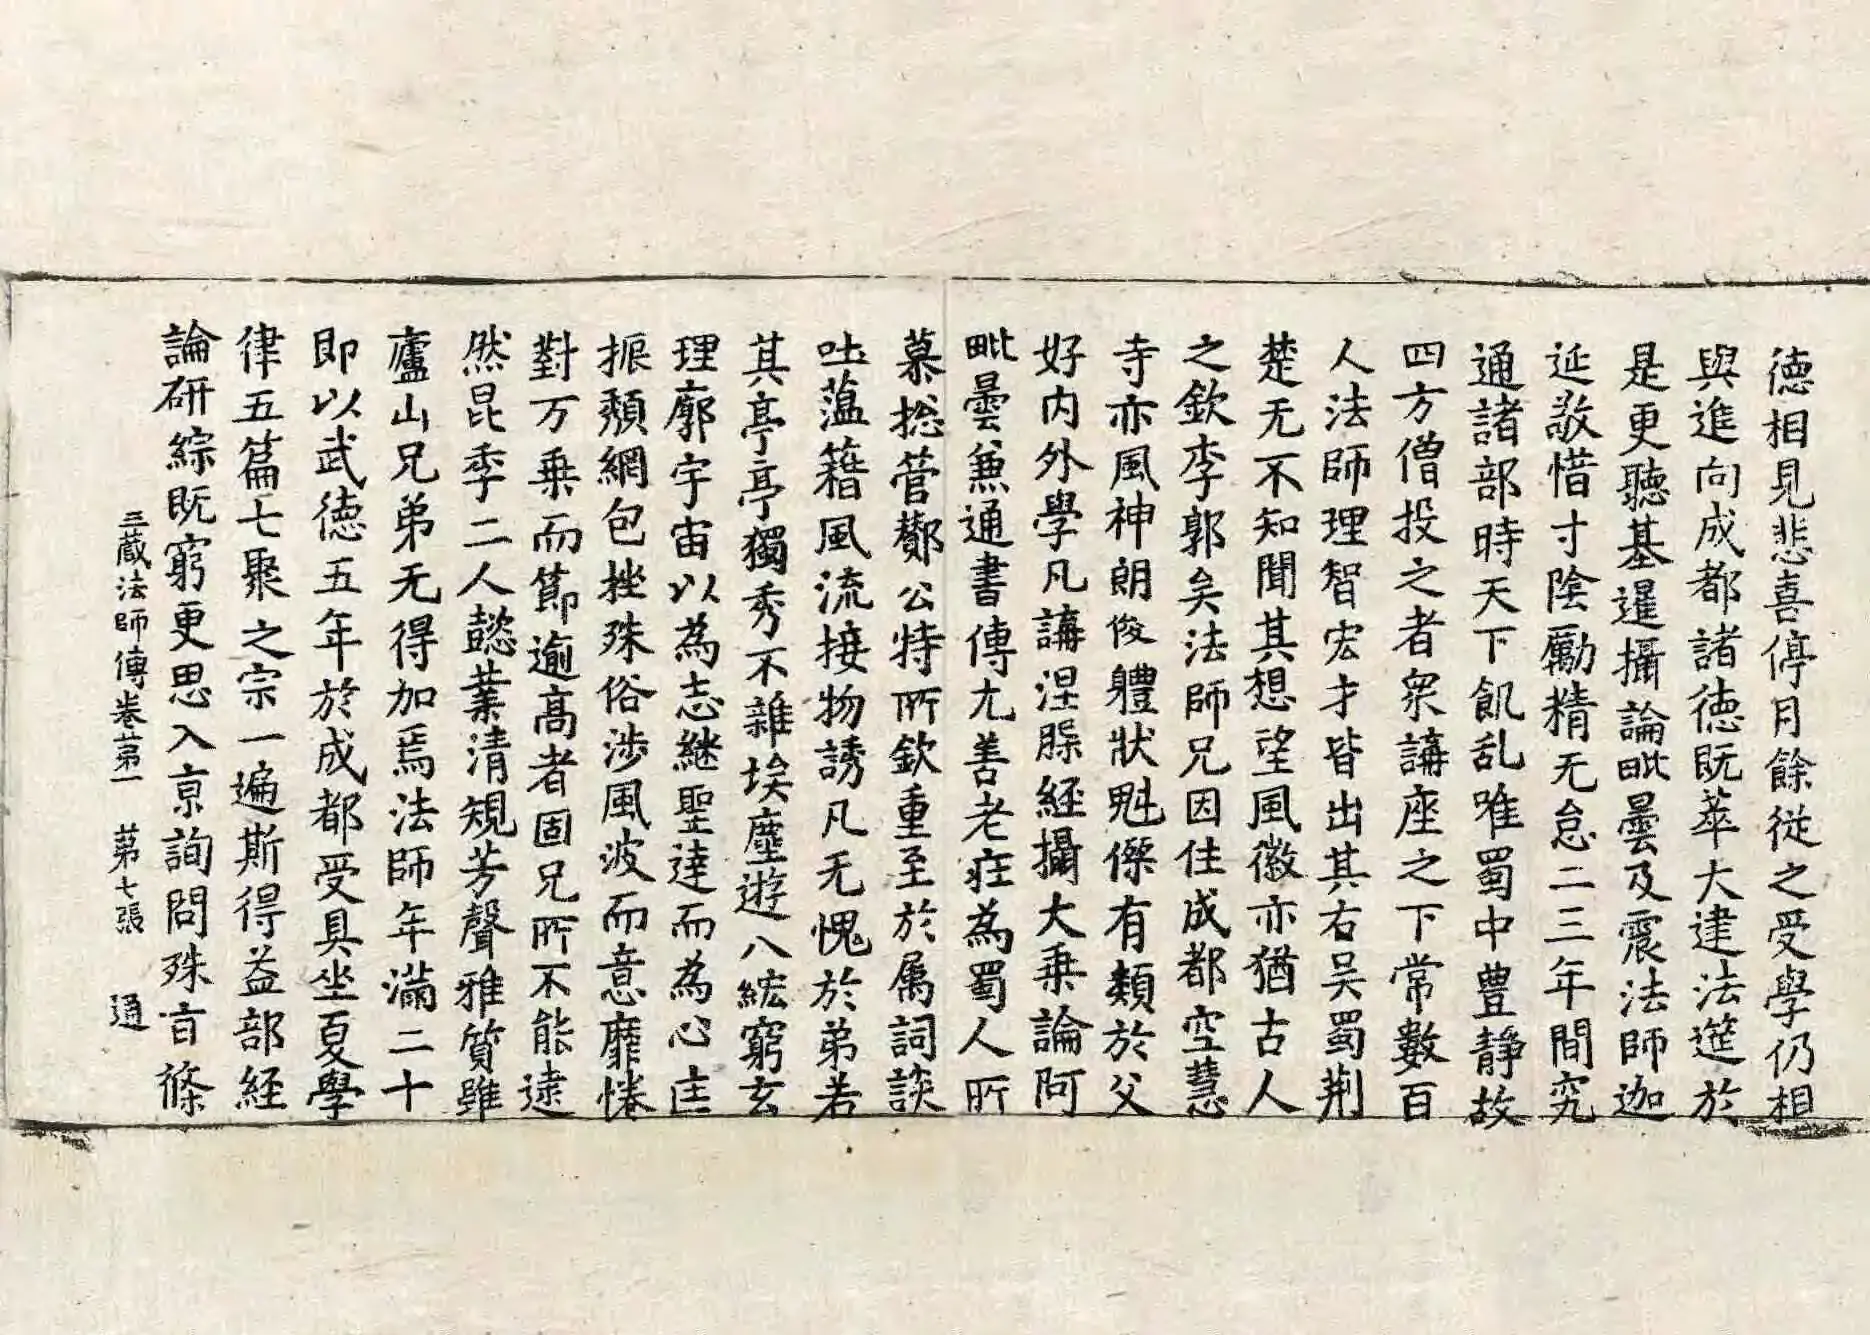 德相見悲喜停月餘從之受學仍相
與進向成都諸德既萃大建法筵於
是更聽基暹攝論毗曇及震法師迦
延敬惜寸陰勵精无怠二三年間究
通諸部時天下飢乱唯蜀中豊靜故
四方僧投之者衆講座之下常數百
人法師理智宏才皆出其右吴蜀荊
楚无不知聞其想望風徽亦猶古人
之欽李郭矣法師兄因住成都空慧
寺亦風神朗俊體狀魁傑有類於父
好内外學凡講涅槃經攝大乗論阿
毗曇兼通書傳尤善老莊為蜀人所
慕揔管酇公特所欽重至於属詞談
吐蕰籍風流接物誘凡无愧於弟若
其亭亭獨秀不雜埃塵遊八紘窮玄
理廓宇宙以為志継聖達而為心匡
振頹網包挫殊俗涉風波而意靡惓
對万乗而節逾髙者固兄所不能逮
然昆季二人懿業清規芳聲雅質雖
廬山兄弟无得加焉法師年滿二十
即以武德五年於成都受具坐夏學
律五篇七聚之宗一遍斯得益部經
論研綜既窮更思入京詢問殊㫖條
三藏法師傳卷第一 苐七張 通